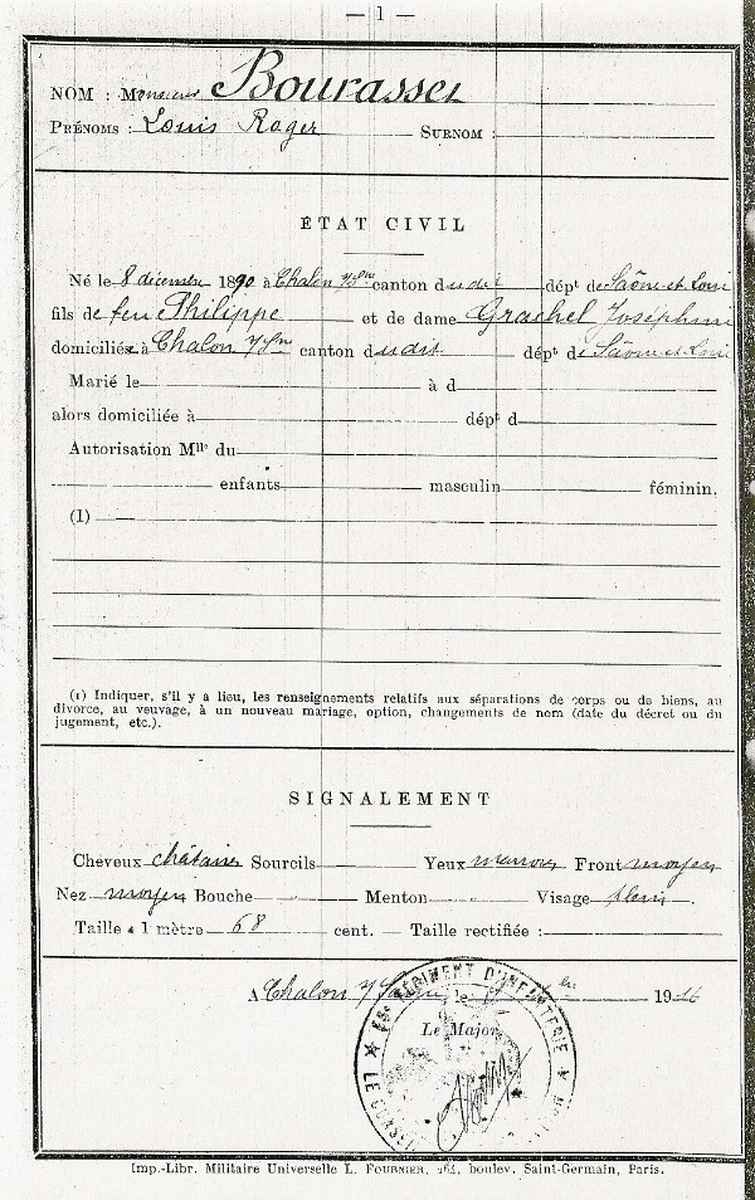 — 1 —
NOM : Monsieur Bourasset
PRÉNOMS : Louis Roger SURNOM :
ÉTAT CIVIL
Né le 8 décembre 1890 à Chalon s/Sne canton dudit dépt de Saône et Loire
fils de feu Philippe et de dame Grachel Joséphine
domiciliés à Chalon s/Sne canton dudit dépt de Saône et Loire
Marié le à d
alors domiciliée à dépt d
Autorisation Mlle du
enfants masculin féminin.
(1)
(1) Indiquer, s'il y a lieu, les renseignements relatifs aux séparations de corps ou de biens, au
divorce, au veuvage, à un nouveau mariage, option, changements de nom (date du décret ou du
jugement, etc.).
SIGNALEMENT
Cheveux châtains Sourcils Yeux marrons Front moyen
Nez moyen Bouche Menton Visage plein.
Taille : 1 mètre 68 cent. — Taille rectifiée :
A Chalon s/Saône, le 1916
RÉGIMENT D'INFANTERIE
Le Major
Imp.-Libr. Militaire Universelle L. FOURNIER, 264, boulev. Saint-Germain, Paris.